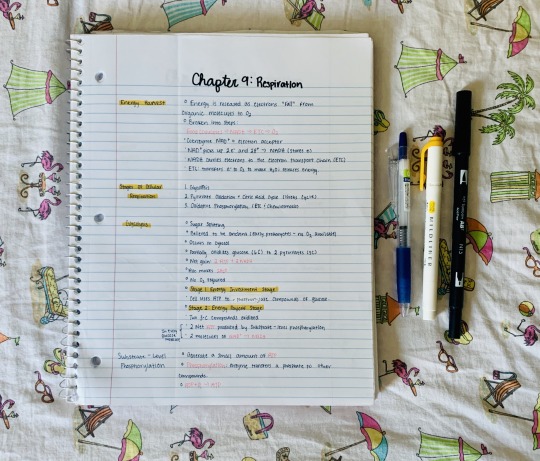 Chapter 9: Respiration
Energy Harvest
° Energy is released as electrons "fall" from
organic molecules to O₂
° Broken into steps:
→ NADH → ETC → O₂
° Coenzyme NAD⁺ = electron acceptor
° NAD⁺ picks up 2e⁻ and 2H⁺ → NADH (stores e)
° NADH carries electrons to the electron transport chain (ETC)
° ETC transfers e⁻ to O₂ to make H₂O; releases energy.
Stages of Cellular
Respiration
1. Glycolysis
2. Pyruvate Oxidation + Citric Acid Cycle (Krebs Cycle)
3. Oxidative Phosphorylation (ETC + Chemiosmosis
Glycolysis
° Sugar Splitting
° Believed to be ancient (early prokaryotes - no O₂ available)
° Occurs in cytosol
° Partially oxidize glucose (6C) to 2 pyruvates (3C)
° Net gain: 2 ATP + 2 NADH
° Also makes
° No O₂ required
° Stage 1: Energy Investment Stage
° Cell uses ATP to compounds of glucose
° Stage 2: Energy Payoff Stage
Two 3-C compounds oxidized
° 2 Net ATP produced by substrate - level phosphorylation
° 2 molecules of NAD⁺ → NADH
Substrate - Level
Phosphorylation
° Generate a small amount of ATP
° Phosphorylation: enzyme transfers a phosphate to other
compounds
° → ATP
MILDLINER